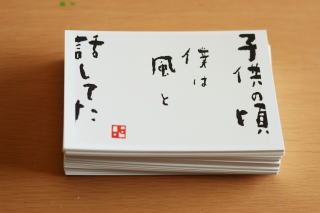 子供の頃
僕は
風と
話してた